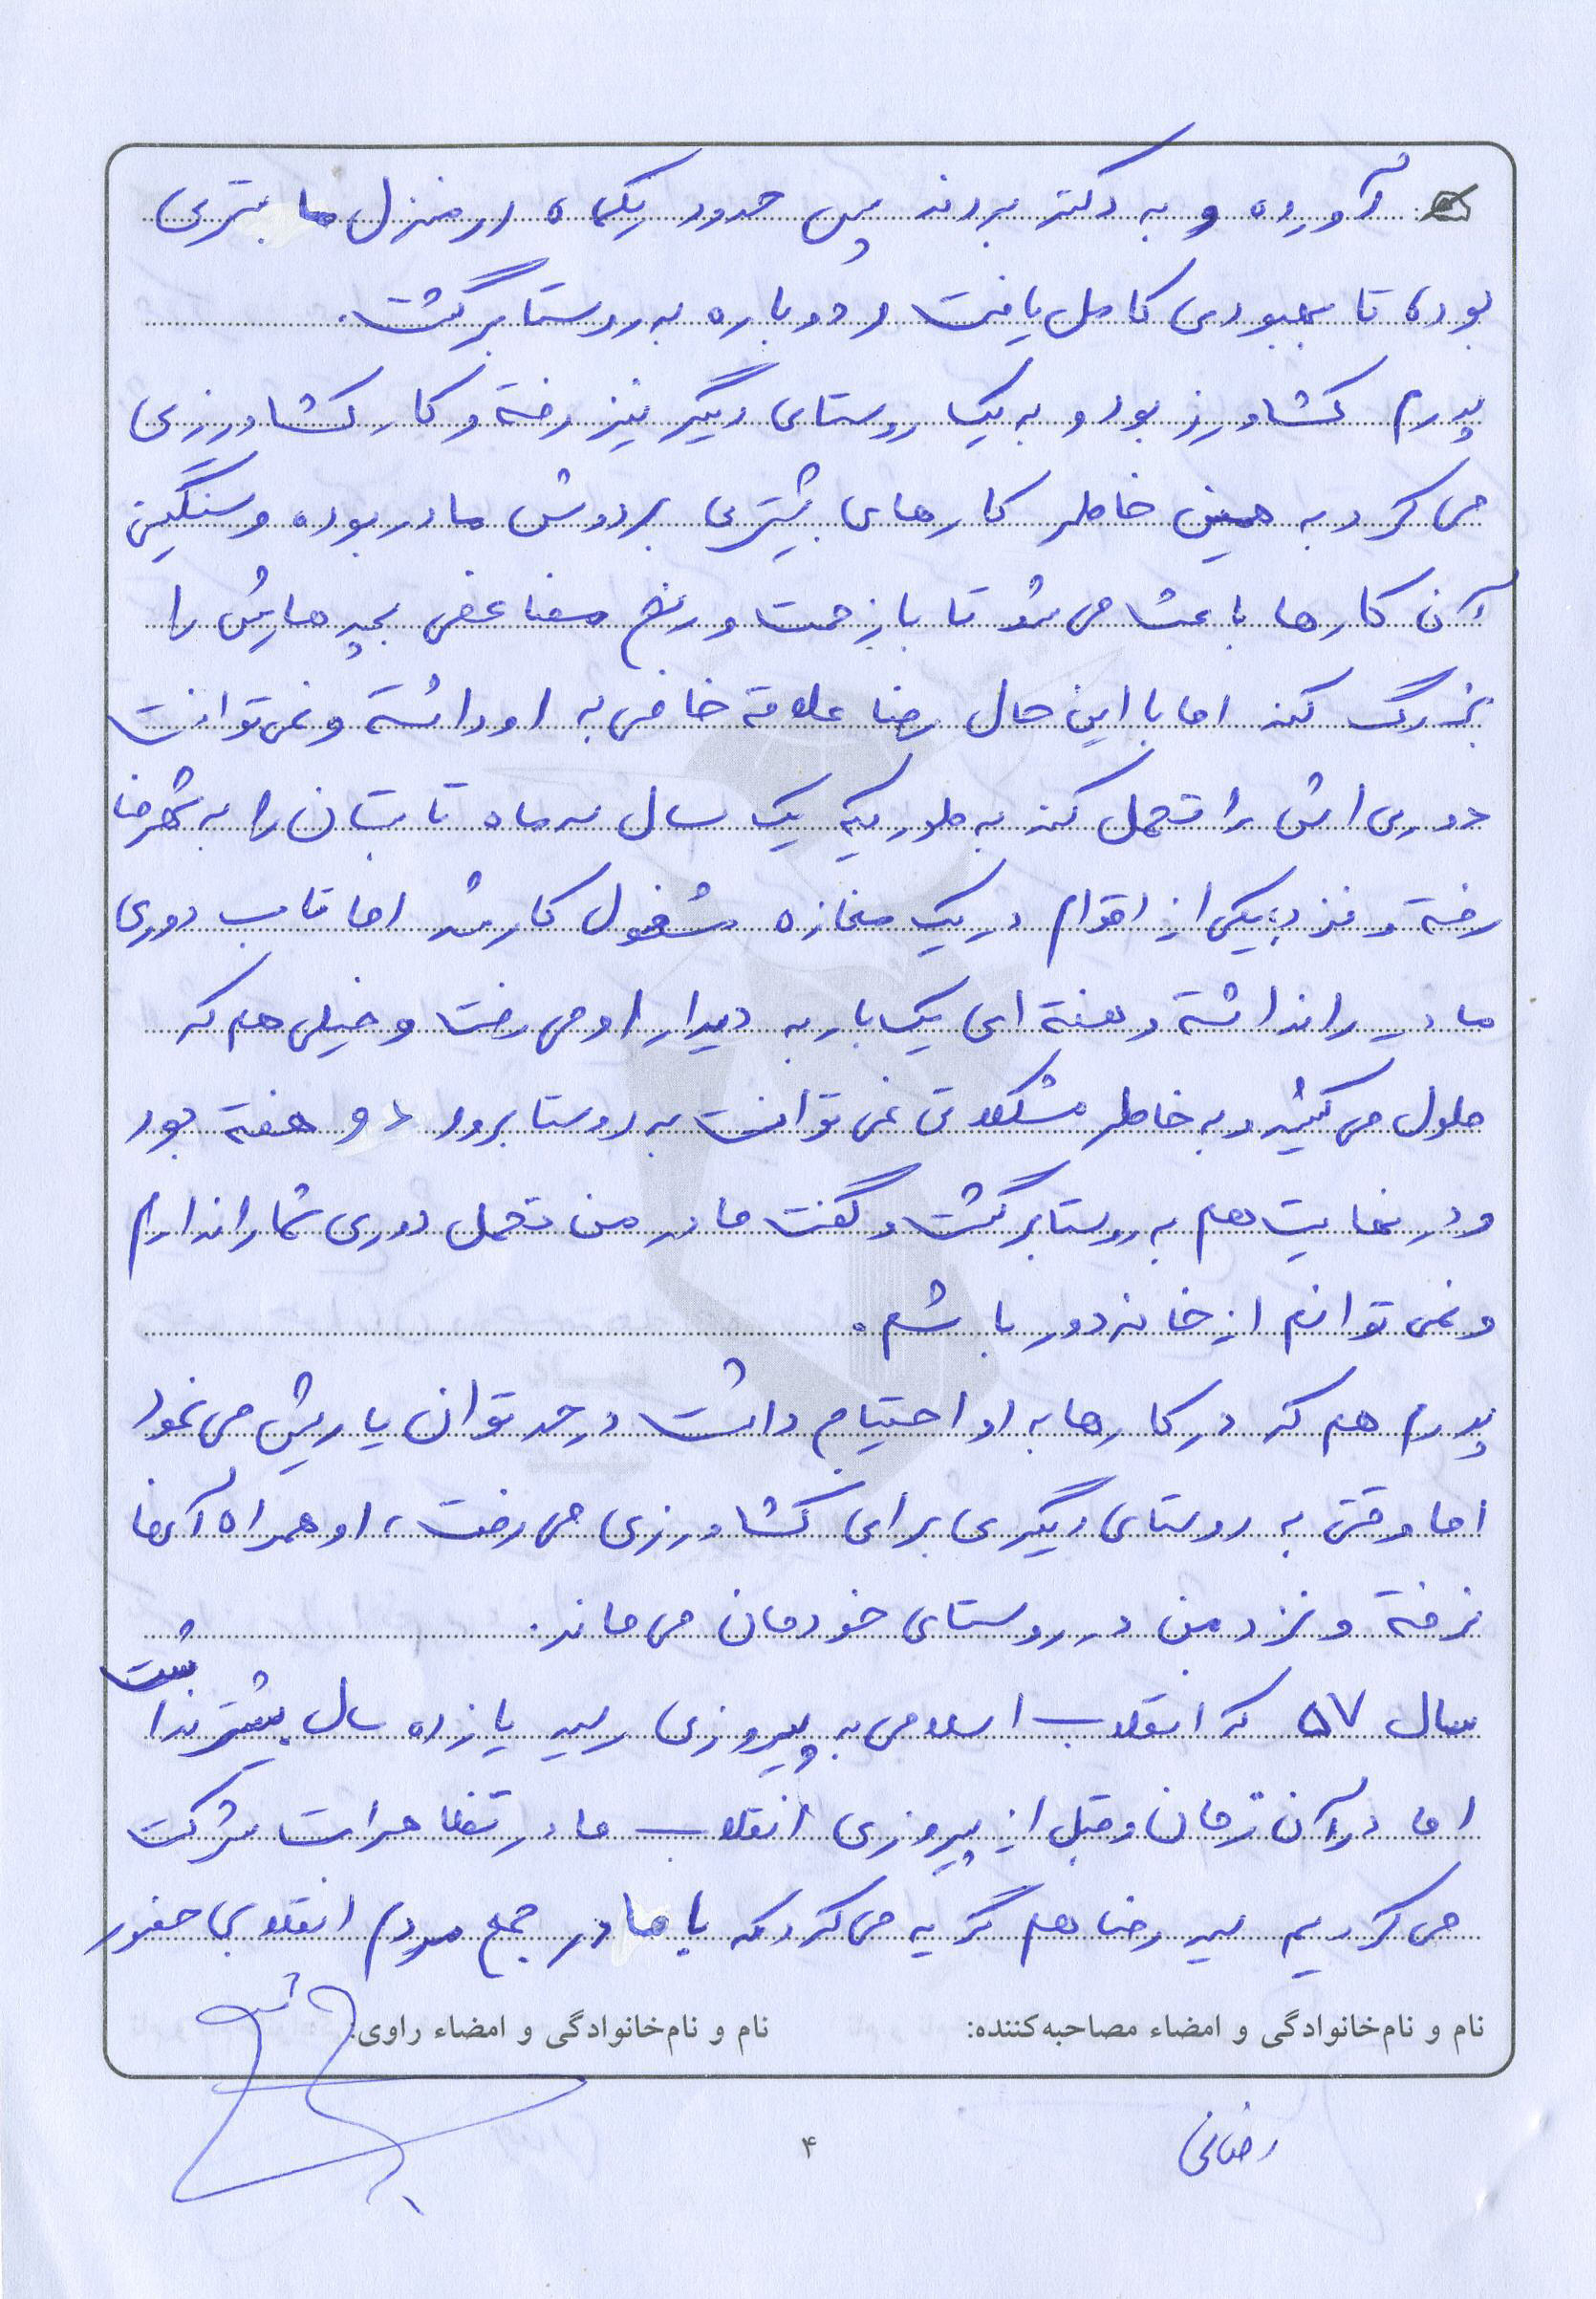 آورده و به دکتر بردند پس حدود یکماه در منزل ما بستری
بوده تا بهبودی کامل یافت و دوباره به روستا برگشت.
پدرم کشاورز بود و به یک روستای دیگر نیز رفته و کار کشاورزی
می کرد به همین خاطر کارهای بیشتری بر دوش مادر بوده و سنگینی
آن کارها باعث می شد تا با زحمت و رنج مضاعفی بچه هایش را
بزرگ کند اما با این حال رضا علاقه خاصی به او داشته و نمی توانست
دوری اش را تحمل کند به طوریکه یک سال سه ماه تابستان را به شهرضا
رفته و نزد یکی از اقوام در یک مغازه مشغول کار شد اما تاب دوری
مادر را نداشته و هفته ای یک بار به دیدار او می رفت و خیلی هم که
طول می کشید و به خاطر مشکلاتی نمی توانست به روستا برود دو هفته بود
و در نهایت هم به روستا برگشت و گفت مادر من تحمل دوری شما را ندارم
و نمی توانم از خانه دور باشم.
پدرم هم که در کارها به او احتیاج داشت در حد توان یاریش می نمود
اما وقتی به روستای دیگری برای کشاورزی می رفت، او همراه آنها
نرفته و نزد من در روستای خودمان می ماند.
سال ۵۷ که انقلاب اسلامی به پیروزی رسید یازده سال بیشتر نداشت
اما در آن زمان و قبل از پیروزی انقلاب ما در تظاهرات شرکت
می کردیم سید رضا هم گریه می کرد که با ما در جمع مردم انقلابی حضور
نام و نام‌خانوادگی و امضاء مصاحبه‌کننده: نام و نام‌خانوادگی و امضاء راوی:
رضائی
۴